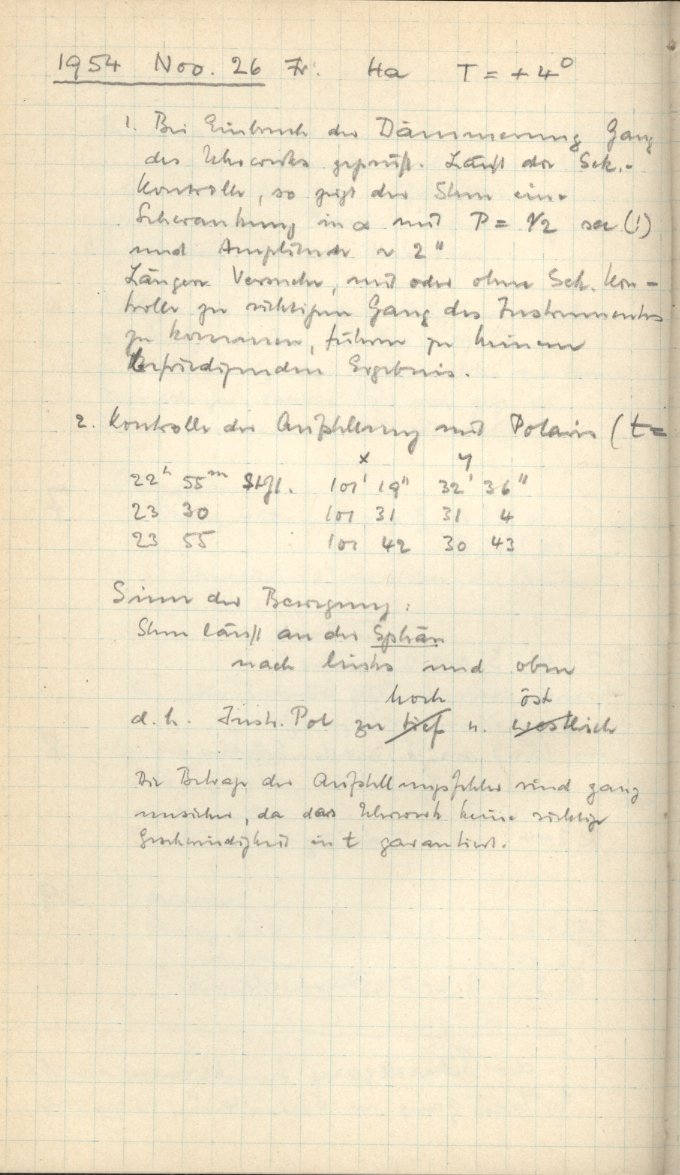 1954 Nov. 26 Fr. Ha T = + 4°
1. Bei Einbruch der Dämmerung Gang
des Uhrwerks geprüft. Läuft der Sek.-
Kontrolle, so zeigt der Stern eine
Schwankung in α mit P = 1/2 sec (!)
und Amplitude ~ 2"
Längere Versuche, mit oder ohne Sek. Kon-
trolle zu richtigem Gang des Instrumentes
zu kommen, führen zu keinem
befriedigenden Ergebnis.
2. Kontrolle der Aufstellung mit Polaris (t=
x y
22h 55m 101' 19" 32' 36"
23 30 101 31 31 4
23 55 101 42 30 43
Sinn der Bewegung:
Stern läuft an der Sphäre
nach links und oben
hoch öst
d.h. Instr. Pol zu tief u. westlich
Die Beträge der Aufstellungsfehler sind ganz
unsicher, da das Uhrwerk keine richtige
Geschwindigkeit in t garantiert.